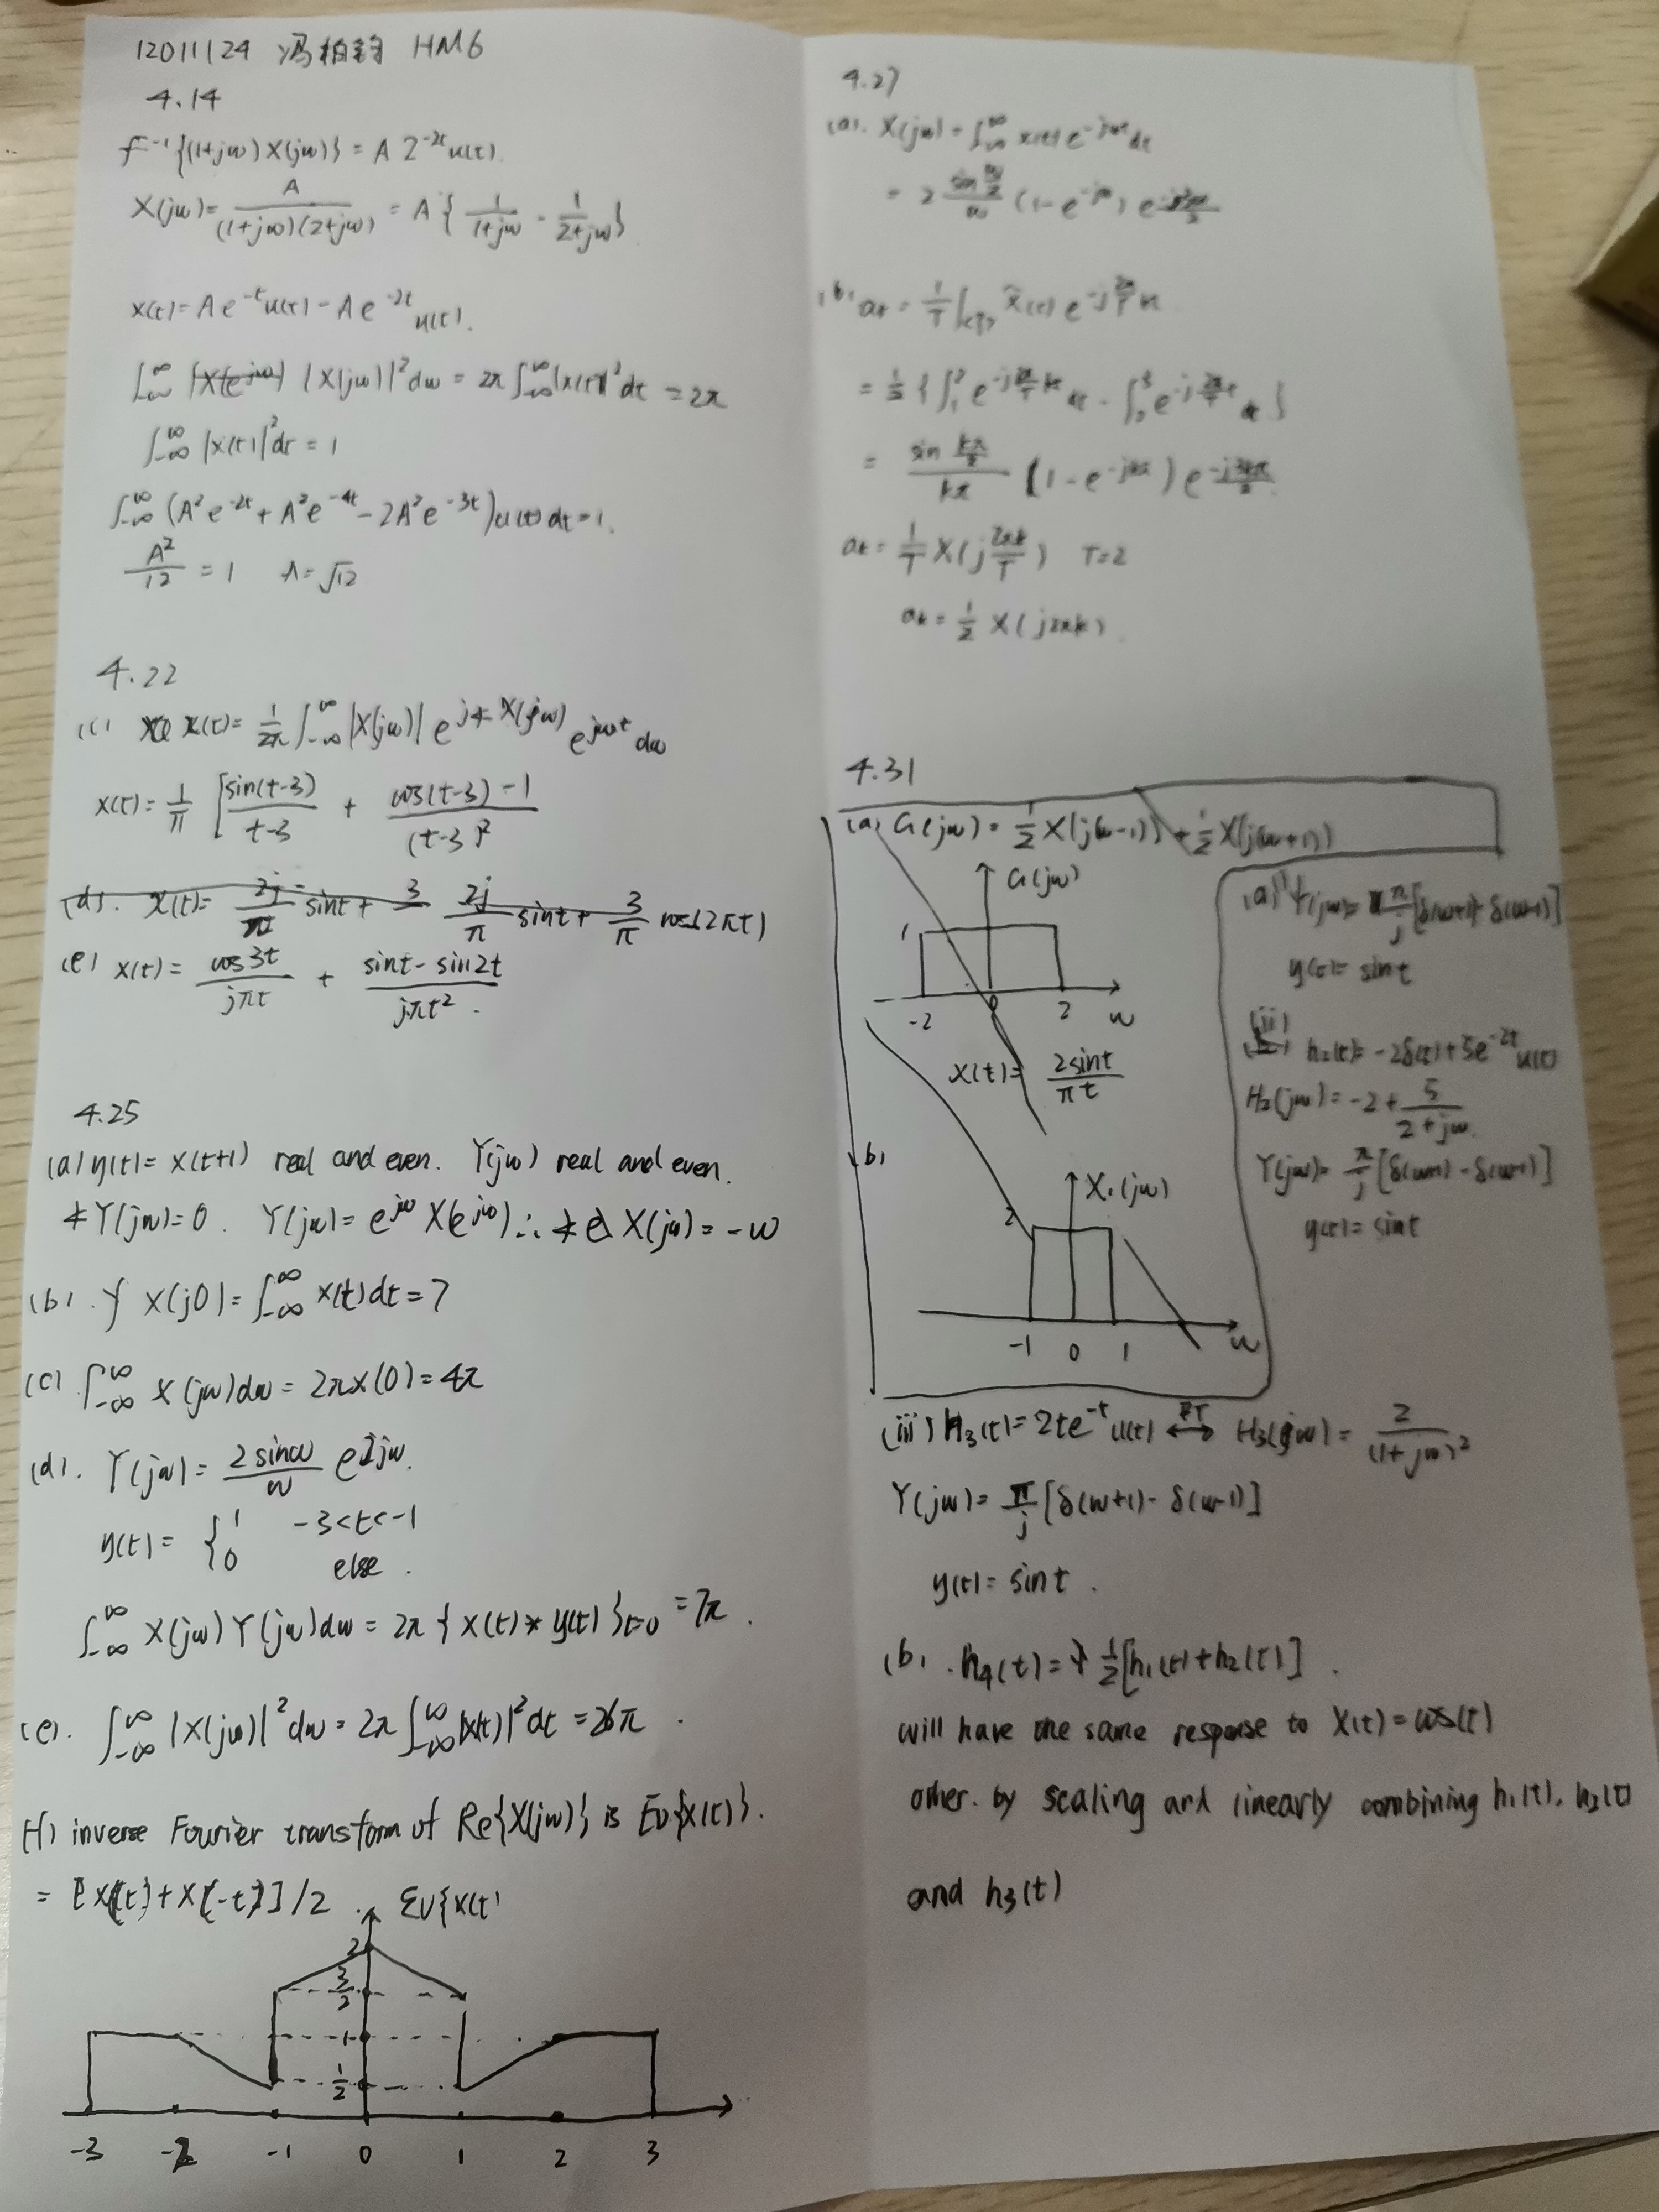 12011124 冯柏钧 HM6
4.14
F⁻¹{(1+jω)X(jω)} = A 2^{-2t} u(t).
X(jω) = A/((1+jω)(2+jω)) = A{1/(1+jω) - 1/(2+jω)}
x(t) = Ae^{-t}u(t) - Ae^{-2t}u(t).
∫_{-∞}^{∞} |X(jω)|²dω = 2π∫_{-∞}^{∞}|x(t)|²dt = 2π
∫_{-∞}^{∞} |x(t)|²dt = 1
∫_{-∞}^{∞} (A²e^{-2t} + A²e^{-4t} - 2A²e^{-3t})u(t)dt = 1.
A²/12 = 1   A = √12
4.22
(c) x(t) = 1/2π ∫_{-∞}^{∞} |X(jω)| e^{j∡X(jω)} e^{jωt} dω
x(t) = 1/π [sin(t-3)/(t-3) + (cos(t-3)-1)/(t-3)²
(d). x(t) = 2j/π sint + 3 2j/π sint + 3/π cos(2πt)
(e) x(t) = cos3t/(jπt) + (sint - sin2t)/(jπt²).
4.25
(a) y(t) = x(t+1) real and even. Y(jω) real and even.
∡Y(jω) = 0. Y(jω) = e^{jω}X(e^{jω}) ∴ ∡X(jω) = -ω
(b). X(j0) = ∫_{-∞}^{∞} x(t)dt = 7
(c) ∫_{-∞}^{∞} X(jω)dω = 2πx(0) = 4π
(d). Y(jω) = 2sinω/ω e^{2jω}.
y(t) = { 1   -3<t<-1
0   else.
∫_{-∞}^{∞} X(jω)Y(jω)dω = 2π{x(t)*y(t)}_{t=0} = 7π.
(e). ∫_{-∞}^{∞} |X(jω)|²dω = 2π∫_{-∞}^{∞}|x(t)|²dt = 26π.
(f) inverse Fourier transform of Re{X(jω)} is Ev{x(t)}.
= [x(t)+x(-t)]/2. Ev{x(t)
2
3/2
1
1/2
-3 -2 -1 0 1 2 3
4.27
(a). X(jω) = ∫_{-∞}^{∞} x(t)e^{-jωt}dt
= 2 sin(ω/2)/ω (1-e^{-jω}) e^{-j3ω/2}
(b) a_k = 1/T ∫_{<T>} x̃(t) e^{-j(2π/T)kt}
= 1/2 {∫_1^2 e^{-j(2π/T)kt} dt - ∫_2^3 e^{-j(2π/T)kt} dt}
= sin(kπ/2)/(kπ) (1-e^{-jkπ}) e^{-j3kπ/2}
a_k = 1/T X(j 2πk/T)   T=2
a_k = 1/2 X(j2πk).
4.31
(a) G(jω) = 1/2 X(j(ω-1)) + 1/2 X(j(ω+1))
G(jω)
1
-2 0 2 ω
x(t) = 2sint/(πt)
b)
X₁(jω)
2
-1 0 1 ω
(a) (i) Y(jω) = π/j [δ(ω+1) - δ(ω-1)]
y(t) = sint
(ii) h₂(t) = -2δ(t) + 5e^{-2t}u(t)
H₂(jω) = -2 + 5/(2+jω).
Y(jω) = π/j [δ(ω+1) - δ(ω-1)]
y(t) = sint
(iii) H₃(t) = 2te^{-t}u(t) ⟷^{FT} H₃(jω) = 2/(1+jω)²
Y(jω) = π/j [δ(ω+1) - δ(ω-1)]
y(t) = sint.
(b). h₄(t) = 1/2[h₁(t)+h₂(t)].
will have the same response to x(t) = cos(t)
other. by scaling and linearly combining h₁(t), h₂(t)
and h₃(t)